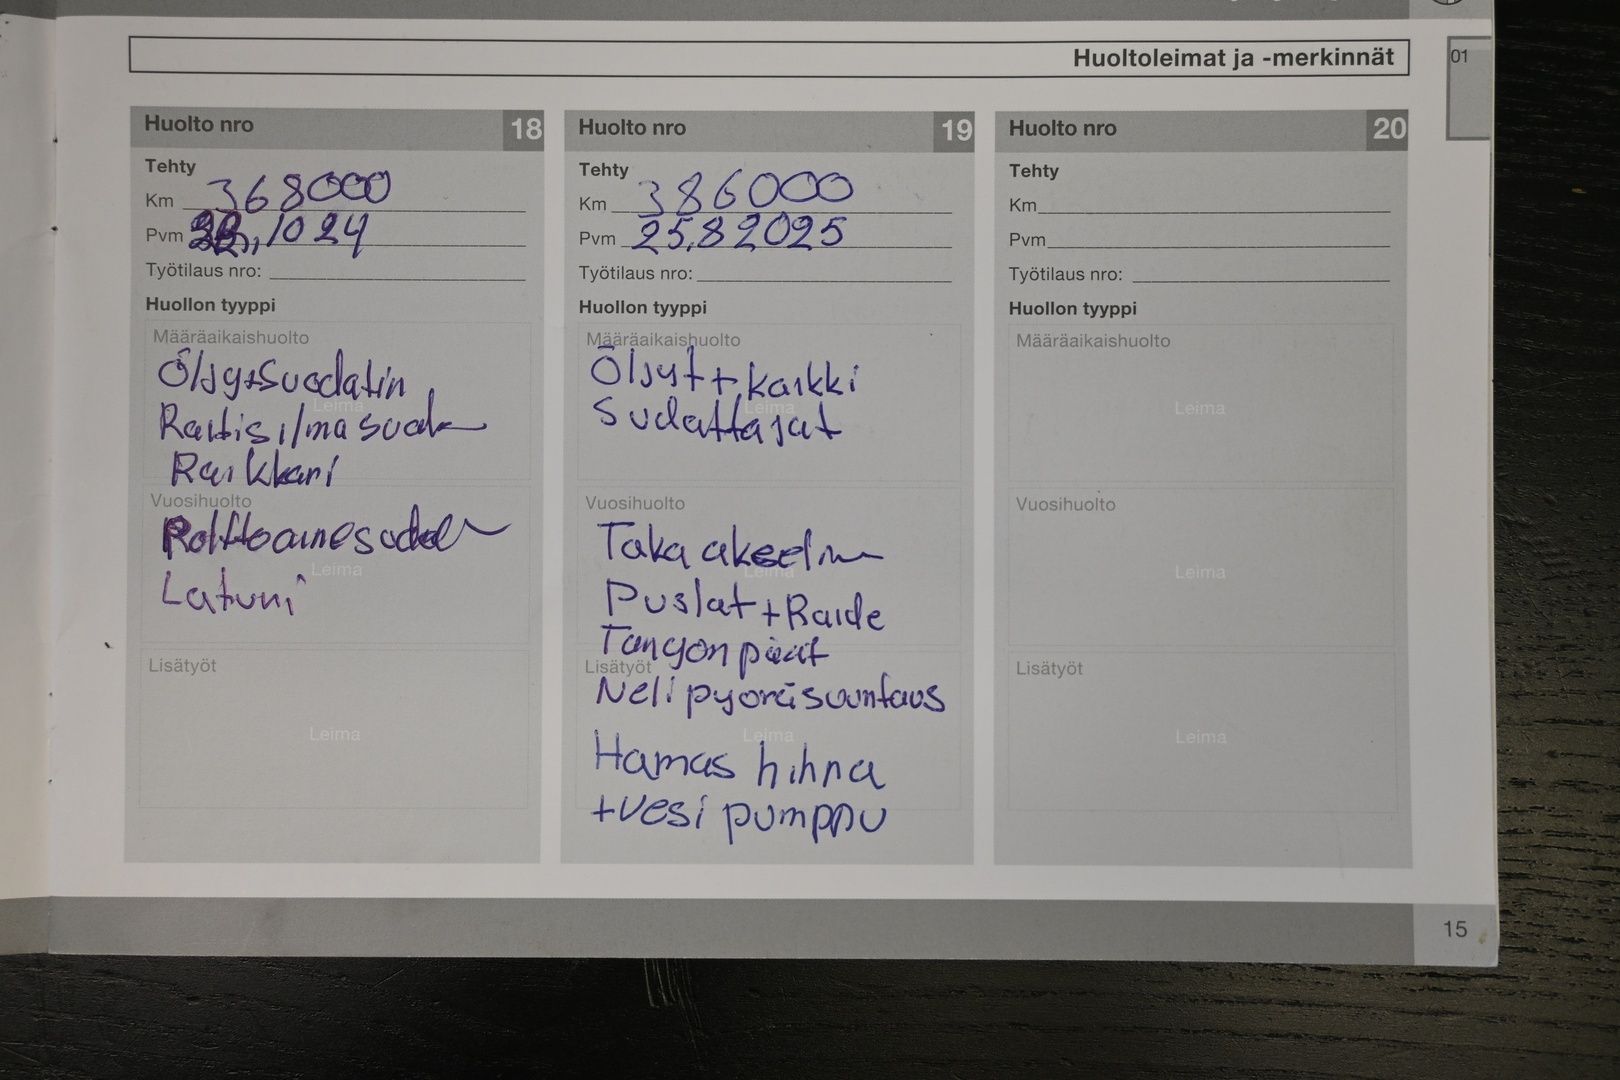 Huoltoleimat ja -merkinnät
01
Huolto nro 18
Tehty
Km 368000
Pvm 10 24
Työtilaus nro:
Huollon tyyppi
Määräaikaishuolto
Öljy+Suodatin
Leima
Raitisilmasuod
Vuosihuolto
Leima
Laturi
Lisätyöt
Leima
Huolto nro 19
Tehty
Km 386000
Pvm 25.8 2025
Työtilaus nro:
Huollon tyyppi
Määräaikaishuolto
Öljyt + kaikki
Leima
Sudattajat
Vuosihuolto
Taka akselin
Leima
Puslat + Raide
Tangon päät
Lisätyöt
Neli pyöräsuuntaus
Leima
Hamas hihna
+vesi pumppu
Huolto nro 20
Tehty
Km
Pvm
Työtilaus nro:
Huollon tyyppi
Määräaikaishuolto
Leima
Vuosihuolto
Leima
Lisätyöt
Leima
15